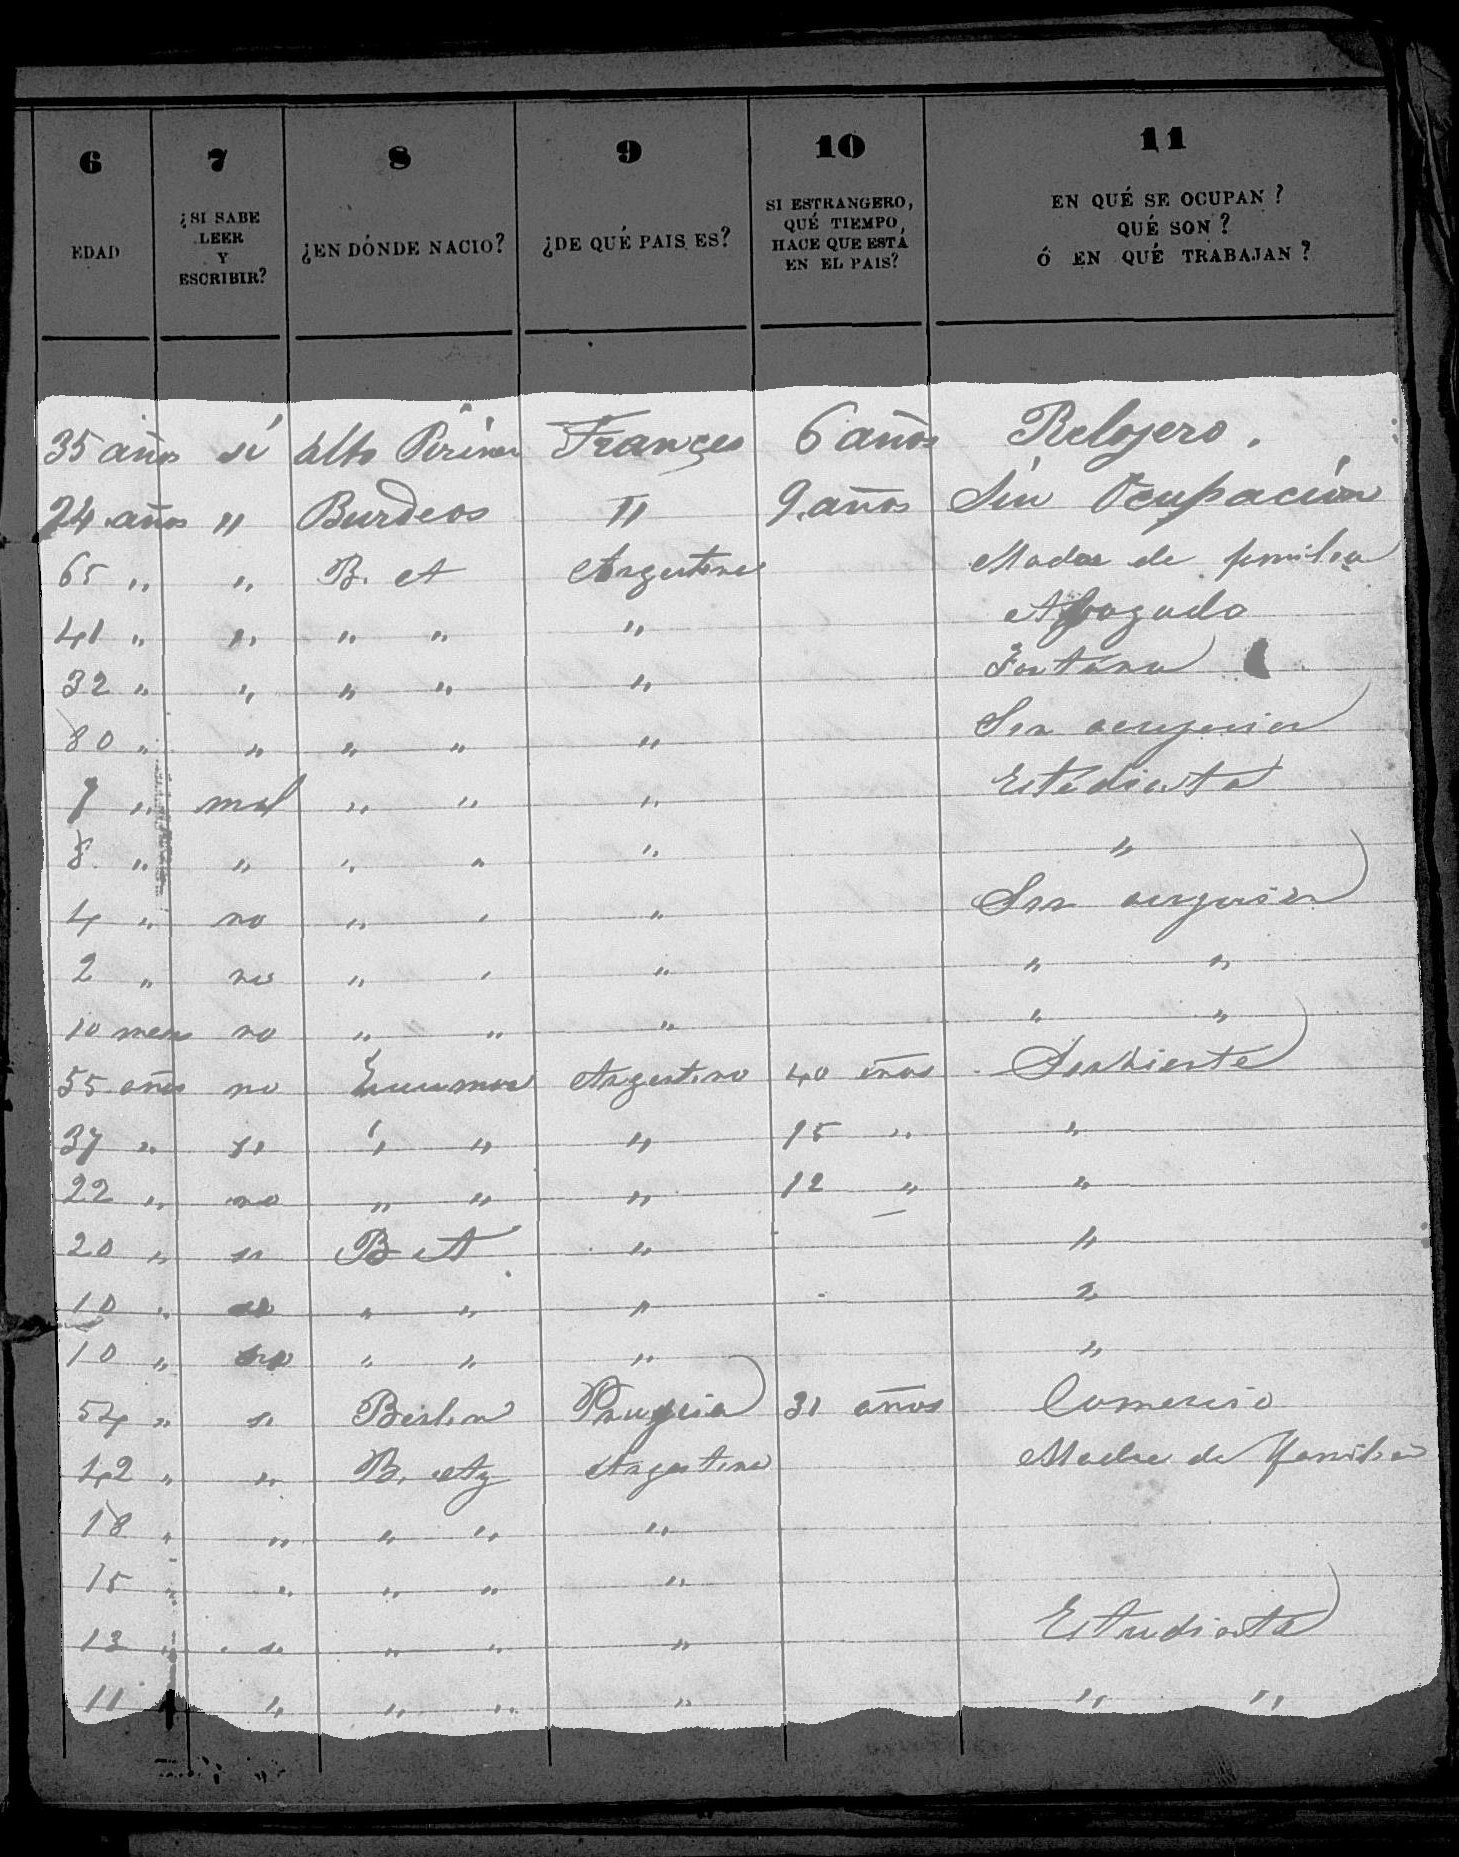 6 7 8 9 10 11
EDAD ¿SI SABE LEER Y ESCRIBIR? ¿EN DÓNDE NACIO? ¿DE QUÉ PAIS ES? SI ESTRANGERO, QUÉ TIEMPO HACE QUE ESTÁ EN EL PAIS? EN QUÉ SE OCUPAN? QUÉ SON? Ó EN QUÉ TRABAJAN?
35 años sí Alto Frances 6 años Relojero.
24 años " Burdeos " 9 años Sin Ocupación
65 " " B. A Argentina Madre de familia
41 " " " " " Abogado
32 " " " " "
80 " " " " " Sin
7 " mal " " " Estudiante
8 " " " " " "
4 " no " " " Sin
2 " no " " " " "
10 mess no " " " " "
55 años no Argentino 40 años Sirviente
37 " si " " " 15 " "
22 " no " " " 12 " "
20 " si B A " "
10 " " " " "
10 " no " " " "
54 " si Berlin Prusia 31 años Comercio
42 " " B. Argentina Madre de familia
18 " " " " "
15 " " " " "
13 " si " " " Estudiante
11 " " " " " "